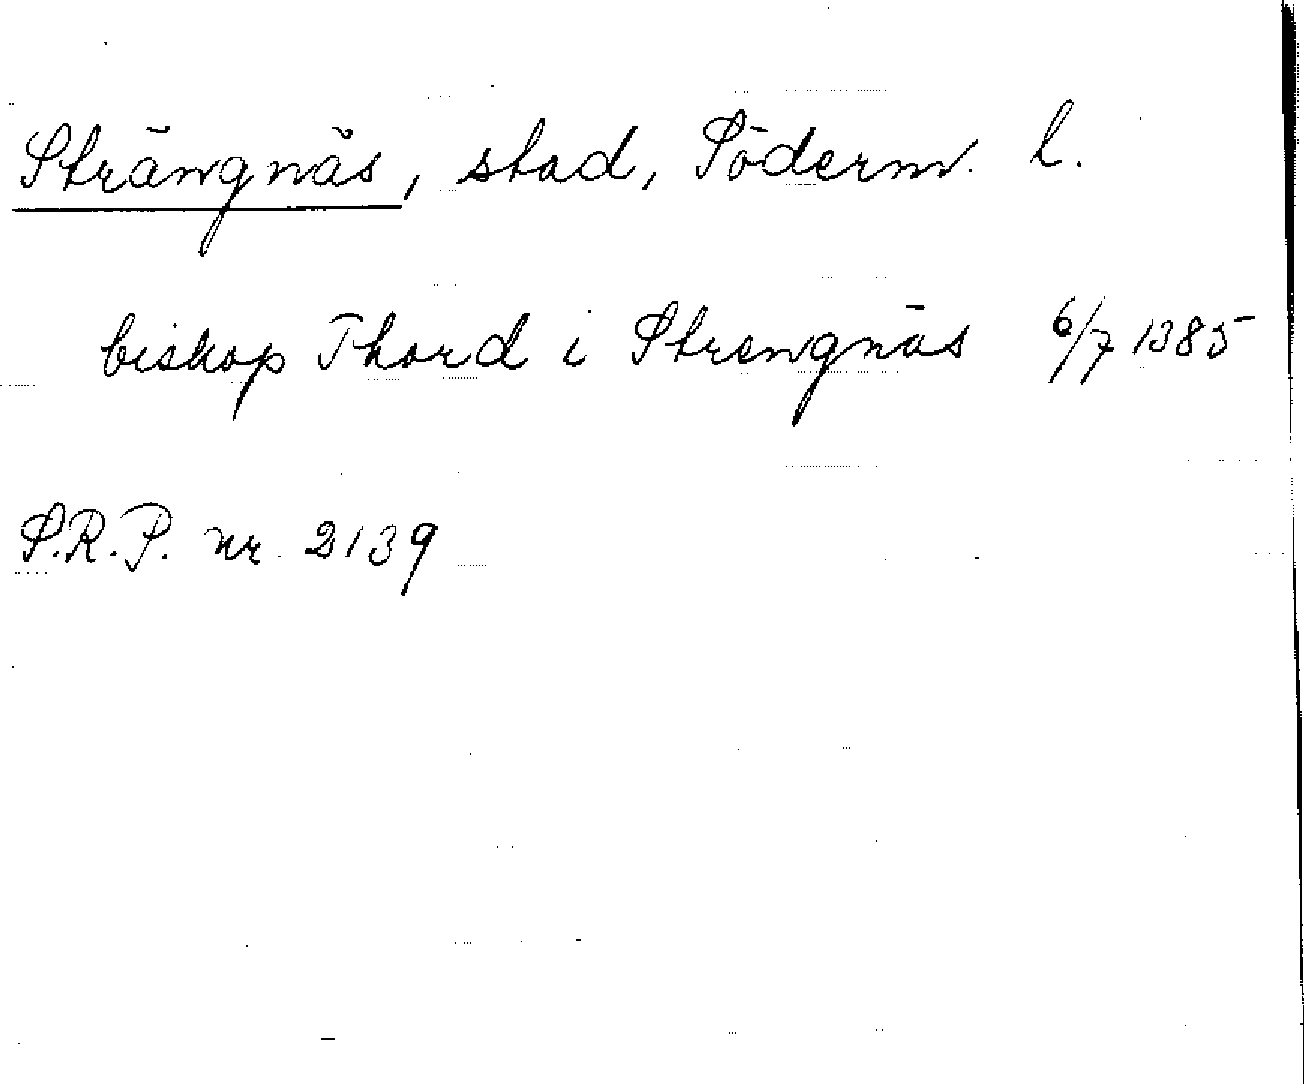 Strängnäs, stad, Söderm. l.
biskop Thord i Strengnäs 6/7 1385
S.R.P. nr 2139